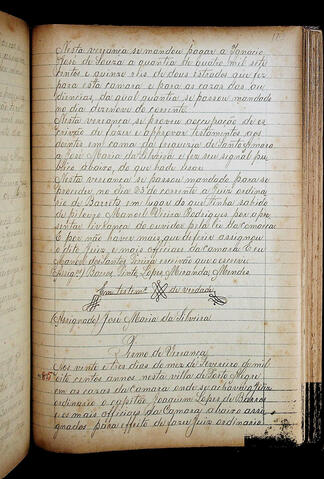 Nesta vereança se mandou pagar a Ignacio
José de Souza a quantia de quatro mil sete
centos e quinze réis de dous estrados que fez
para esta camara e para as cazas das au
diencias, da qual quantia se passou mandado
no dia dezenove do corrente.
Nesta vereança se proveu a occupação de es
crivão de fazer e approvar testamentos aos
doentes em cama da freguezia de Santo Amaro
a José Maria da Silveira e fez seu signal pu
blico abaixo, do que hade usar.
Nesta vereança se passou mandado para se
proceder no dia 23 do corrente a Juiz ordina
rio de Barrete em lugar do que tinha sahido
de pilouro Manoel Vieira Rodrigues por apre
sentar livrança do ouvidor pela lei da comarca
E por não haver mais que deferir assignou
o dito Juiz e mais officiaes da Camara E eu
Manoel dos Santos escrivão que escrevi
Barros, Pinto, Lopes, Miranda, Mendes
Em testem.º de verdade
(Assignado) José Maria da Silveira
Termo de Vereança
Aos vinte e tres dias do mez de Fevereiro de mil
oito centos annos nesta villa de Porto Alegre
em as cazas da Camara onde se achava o Juiz
ordinario o capitão Joaquim Lopes de Barros
e os mais officiaes da Camara abaixo assi
gnados para effeito de fazer Juiz ordinario